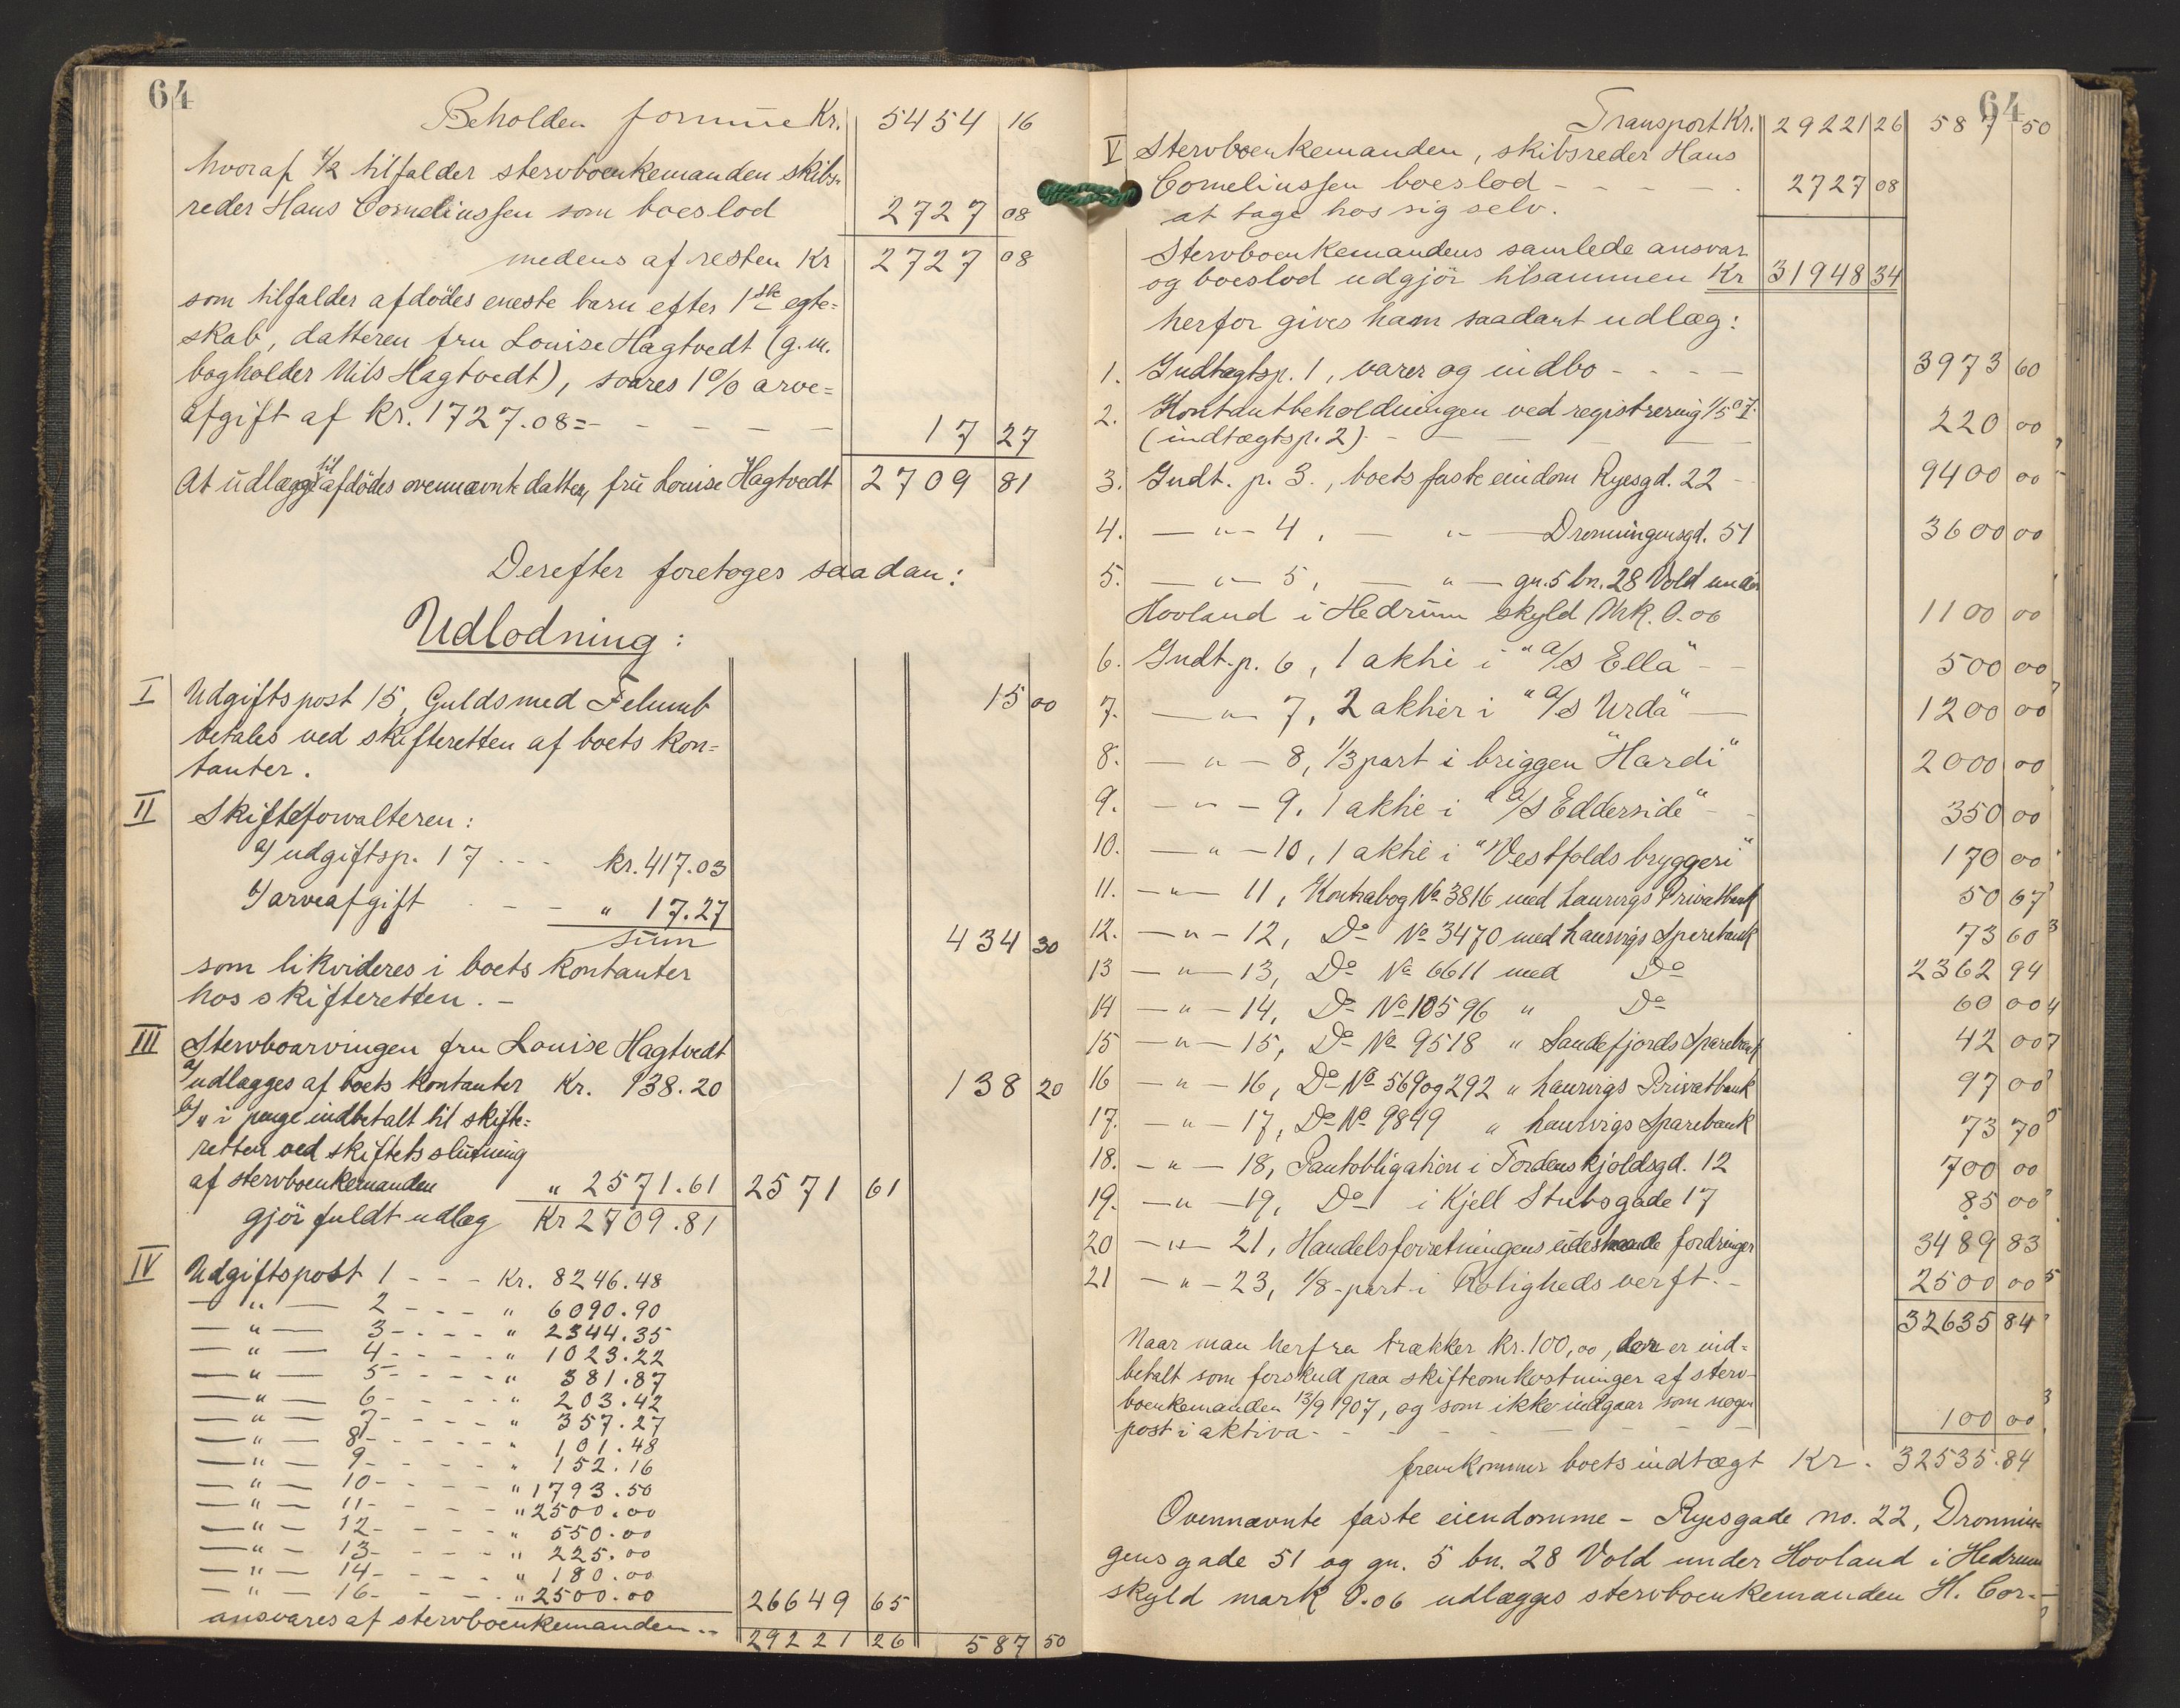 64
Beholden formue Kr. 5454 16
hvoraf 1/2 tilfalder stervboenkemanden skibs-
reder Hans Corneliussen som boeslod 2727 08
medens af resten Kr 2727 08
som tilfalder afdödes eneste barn efter 1ste egte=
skab, datteren fru Louise Hagtvedt (g.m.
bogholder Nils Hagtvedt), svares 1% arve=
afgift af kr. 1727.08= - - - - 17 27
At udlægge til afdödes ovennævnte datter, fru Louise Hagtvedt 2709 81
Derefter foretoges saadan:
Udlodning:
I Udgiftspost 15, Guldsmed Felumb 15 00
betales ved skifteretten af boets kon=
tanter.
II Skifteforvalteren:
a/ udgiftsp. 17 - - - kr. 417.03
b/ arveafgift - - - " 17.27
sum 434 30
som likvideres i boets kontanter
hos skifteretten. -
III Stervboarvingen fru Louise Hagtvedt
a/ udlægges af boets kontanter Kr. 138.20 138 20
b/ " i penge indbetalt til skifte=
retten ved skiftets slutning
af stervboenkemanden " 2571.61 2571 61
gjör fuldt udlæg Kr 2709.81
IV Udgiftspost 1 - - - Kr. 8246.48
— " — 2 - - - " 6090.90
— " — 3 - - - - " 2344.35
— " — 4 - - - - " 1023.22
— " — 5 - - - - " 381.87
— " — 6 - - - - " 203.42
— " — 7 - - - - " 357.27
— " — 8 - - - - " 101.48
— " — 9 - - - - " 152.16
— " — 10 - - - - " 1793.50
— " — 11 - - - - " 2500.00
— " — 12 - - - - " 550.00
— " — 13 - - - - " 225.00
— " — 14 - - - - " 180.00
— " — 16 - - - - " 2500.00 26649 65
ansvares af stervboenkemanden -- 29221 26 587 50
64
Transport Kr. 29221 26 587 50
V Stervboenkemanden, skibsreder Hans
Corneliussen boeslod - - - - - 2727 08
at tage hos sig selv.
Stervboenkemandens samlede ansvar
og boeslod udgjör tilsammen Kr 31948 34
herfor gives ham saadant udlæg:
1. Indtægtsp. 1, varer og indbo - - - - 3973 60
2. Kontantbeholdningen ved registrering 1/5 07.
(indtægtsp. 2) - - - - 220 00
3. Indt. p. 3., boets faste eiendom Ryesgd. 22 - 9400 00
4. — " — 4, — " — Dronningensgd. 51 3600 00
5. — " — 5, — " — gn. 5 bn. 28 Vold under
Hovland i Hedrum skyld Mrk. 0.06 1100 00
6. Indt. p. 6, 1 aktie i "A/S Ella" - - 500 00
7. — " — 7, 2 aktier i "A/S Urda" — 1200 00
8. — " — 8, 1/3 part i briggen "Hardi" 2000 00
9. — " — 9, 1 aktie i "A/S Edderside" - - 350 00
10. — " — 10, 1 aktie i "Vestfolds bryggeri" 170 00
11. — " — 11, Kontrabog No 3816 med Laurvigs Privatbank 50 67
12. — " — 12, Do No 3470 med Laurvigs Sparebank 73 60
13 — " — 13, Do No 6611 med Do 2362 94
14 — " — 14, Do No 10596 " Do 60 00
15 — " — 15, Do No 9518 " Sandefjords Sparebank 42 00
16 — " — 16, Do No 569 og 292 " Laurvigs Privatbank 97 00
17. — " — 17, Do No 9849 " Laurvigs Sparebank 73 70
18. — " — 18, Pantobligation i Tordenskjoldsgd. 12 700 00
19. — " — 19, Do i Kjell Stubsgade 17 85 00
20 — " — 21, Handelsforretningens udestaaende fordringer 3489 83
21 — " — 23, 1/8-part i Roligheds verft. - 2500 00
32635 84
Naar man herfra trækker kr. 100,00, der er ind=
betalt som forskud paa skifteomkostninger af sterv-
boenkemanden 13/9 1907, og som ikke indgaar som nogen
post i aktiva - - - - 100 00
fremkommer boets indtægt Kr. 32535.84
Ovennævnte faste eiendomme - Ryesgade no. 22, Dronnin-
gensgade 51 og gn. 5 bn. 28 Vold under Hovland i Hedrum
skyld mark 0.06 udlægges stervboenkemanden H. Cor-